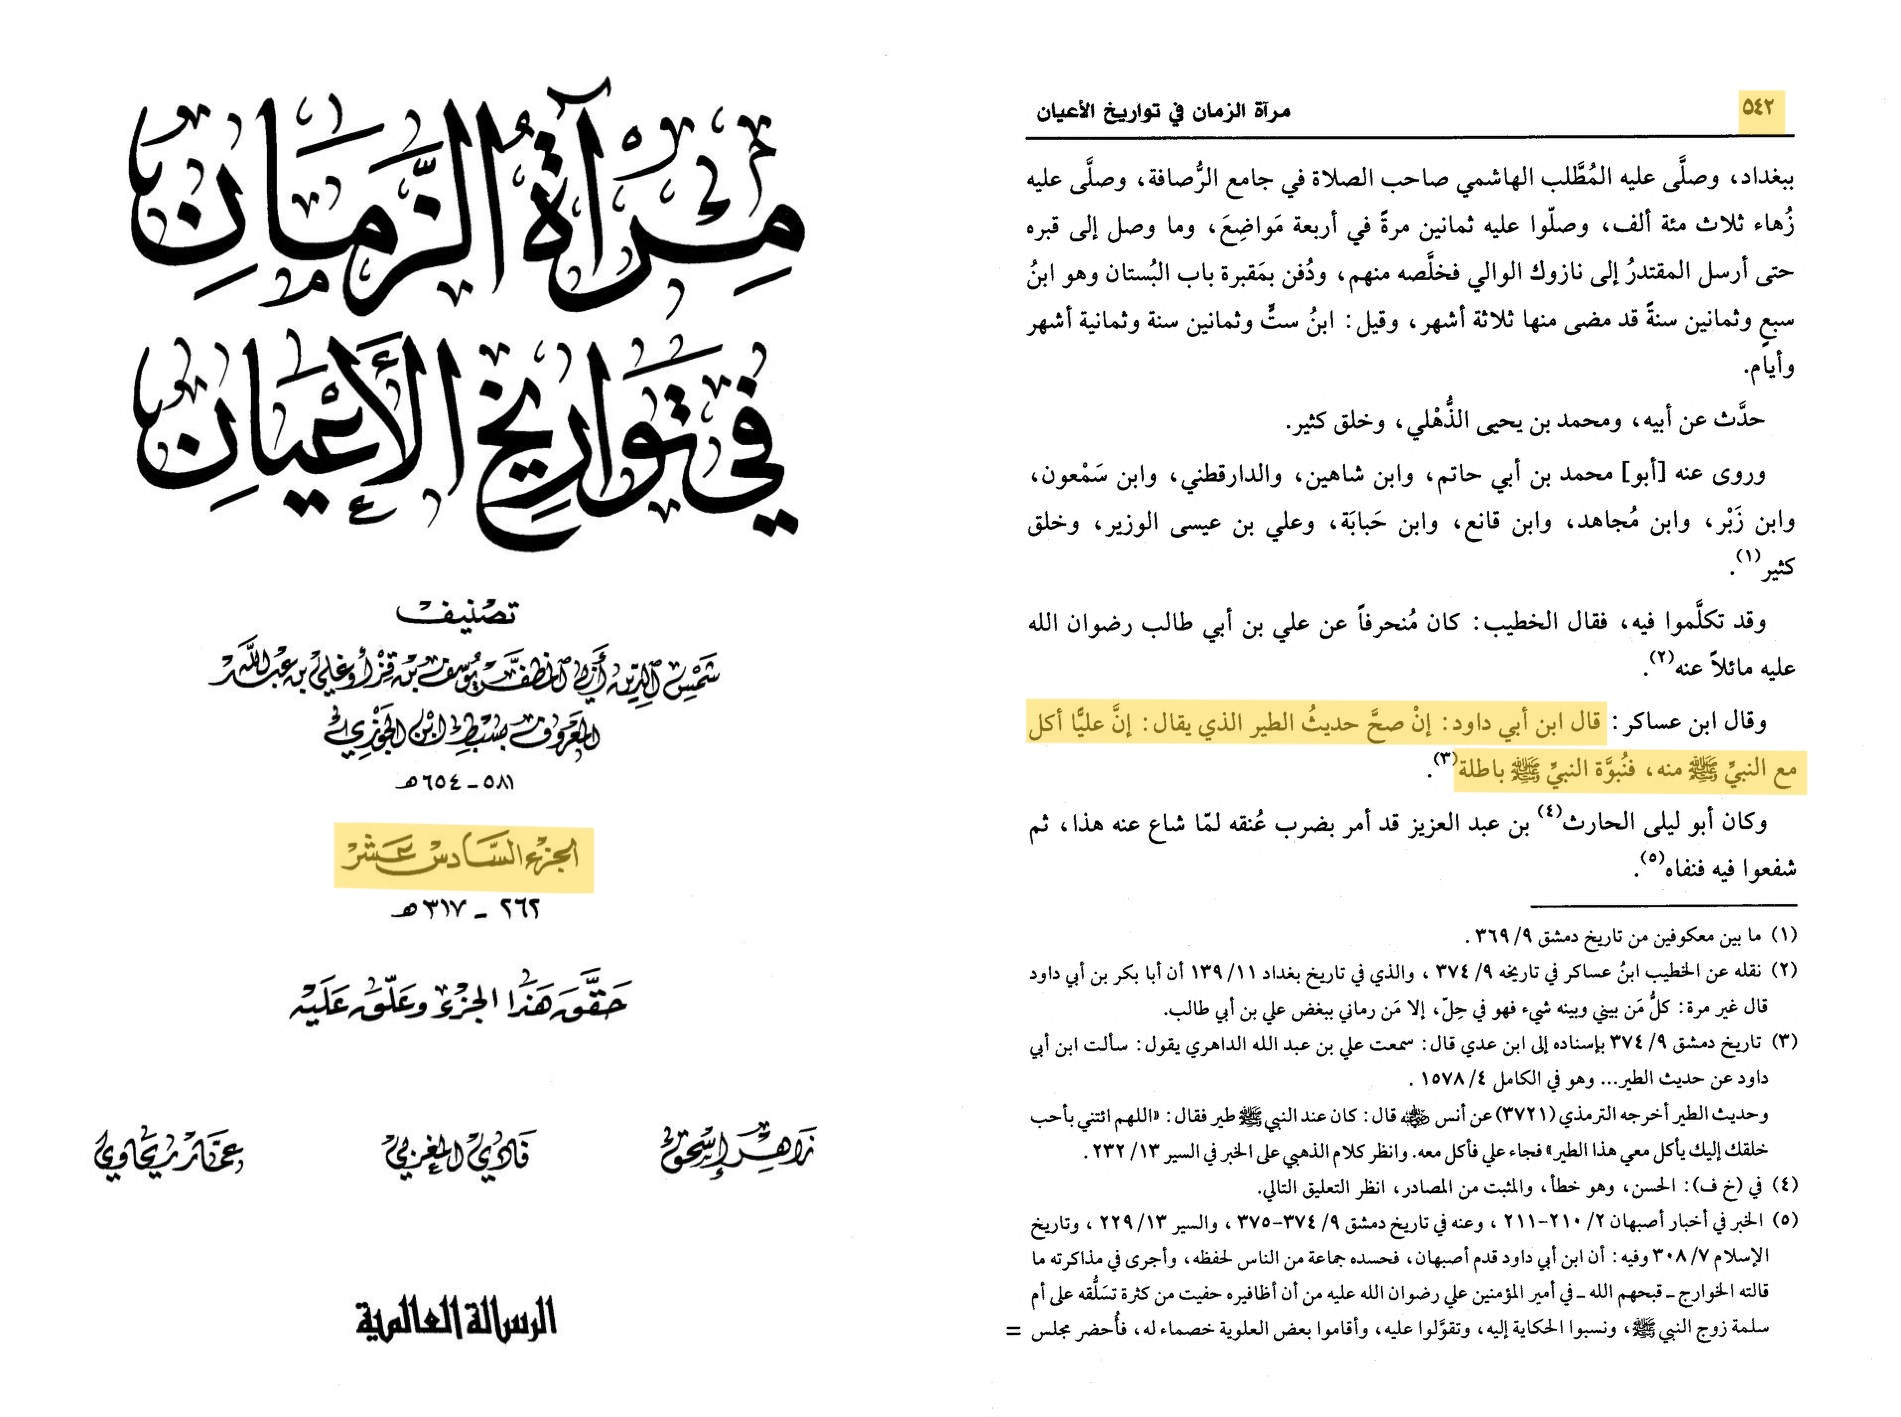 مِرْآةُ الزَّمَانِ
فِي تَوَارِيخِ الأَعْيَانِ
تصنيف
شمس الدين أبي المظفر يوسف بن قزأوغلي بن عبد الله
المعروف بسبط ابن الجوزي
٥٨١ - ٦٥٤ هـ
الجزء السادس عشر
٢٦٢ - ٣١٧ هـ
حقّق هذا الجزء وعلّق عليه
زاهر إسحق فادي المغربي عمار ريحاوي
الرسالة العالمية
٥٤٢ مرآة الزمان في تواريخ الأعيان
ببغداد، وصلَّى عليه المُطَّلب الهاشمي صاحب الصلاة في جامع الرُّصافة، وصلَّى عليه
زُهاء ثلاث مئة ألف، وصلّوا عليه ثمانين مرةً في أربعة مَواضِعَ، وما وصل إلى قبره
حتى أرسل المقتدرُ إلى نازوك الوالي فخلَّصه منهم، ودُفن بمَقبرة باب البُستان وهو ابنُ
سبعٍ وثمانين سنةً قد مضى منها ثلاثة أشهر، وقيل: ابنُ ستٍّ وثمانين سنة وثمانية أشهر
وأيام.
حدَّث عن أبيه، ومحمد بن يحيى الذُّهْلي، وخلق كثير.
وروى عنه [أبو] محمد بن أبي حاتم، وابن شاهين، والدارقطني، وابن سَمْعون،
وابن زَبْر، وابن مُجاهد، وابن قانع، وابن حَبابَة، وعلي بن عيسى الوزير، وخلق
كثير(١).
وقد تكلَّموا فيه، فقال الخطيب: كان مُنحرفاً عن علي بن أبي طالب رضوان الله
عليه مائلاً عنه(٢).
وقال ابن عساكر: قال ابن أبي داود: إنْ صحَّ حديثُ الطير الذي يقال: إنَّ عليًّا أكل
مع النبيِّ ﷺ منه، فنُبوَّة النبيِّ ﷺ باطلة(٣).
وكان أبو ليلى الحارث(٤) بن عبد العزيز قد أمر بضرب عُنقه لمّا شاع عنه هذا، ثم
شفعوا فيه فنفاه(٥).
(١) ما بين معكوفين من تاريخ دمشق ٩/ ٣٦٩ .
(٢) نقله عن الخطيب ابنُ عساكر في تاريخه ٩/ ٣٧٤ ، والذي في تاريخ بغداد ١١/ ١٣٩ أن أبا بكر بن أبي داود
قال غير مرة: كلُّ مَن بيني وبينه شيء فهو في حِلّ، إلا مَن رماني ببغض علي بن أبي طالب.
(٣) تاريخ دمشق ٩/ ٣٧٤ بإسناده إلى ابن عدي قال: سمعت علي بن عبد الله الداهري يقول: سألت ابن أبي
داود عن حديث الطير... وهو في الكامل ٤/ ١٥٧٨ .
وحديث الطير أخرجه الترمذي (٣٧٢١) عن أنس ﷺ قال: كان عند النبي ﷺ طير فقال: «اللهم ائتني بأحب
خلقك إليك يأكل معي هذا الطير» فجاء علي فأكل معه. وانظر كلام الذهبي على الخبر في السير ١٣/ ٢٣٢ .
(٤) في (خ ف): الحسن، وهو خطأ، والمثبت من المصادر، انظر التعليق التالي.
(٥) الخبر في أخبار أصبهان ٢/ ٢١٠-٢١١ ، وعنه في تاريخ دمشق ٩/ ٣٧٤-٣٧٥ ، والسير ١٣/ ٢٢٩ ، وتاريخ
الإسلام ٧/ ٣٠٨ وفيه: أن ابن أبي داود قدم أصبهان، فحسده جماعة من الناس لحفظه، وأجرى في مذاكرته ما
قالته الخوارج ـ قبحهم الله ـ في أمير المؤمنين علي رضوان الله عليه من أن أظافيره حفيت من كثرة تسَلُّقه على أم
سلمة زوج النبي ﷺ، ونسبوا الحكاية إليه، وتقوَّلوا عليه، وأقاموا بعض العلوية خصماء له، فأُحضر مجلس =